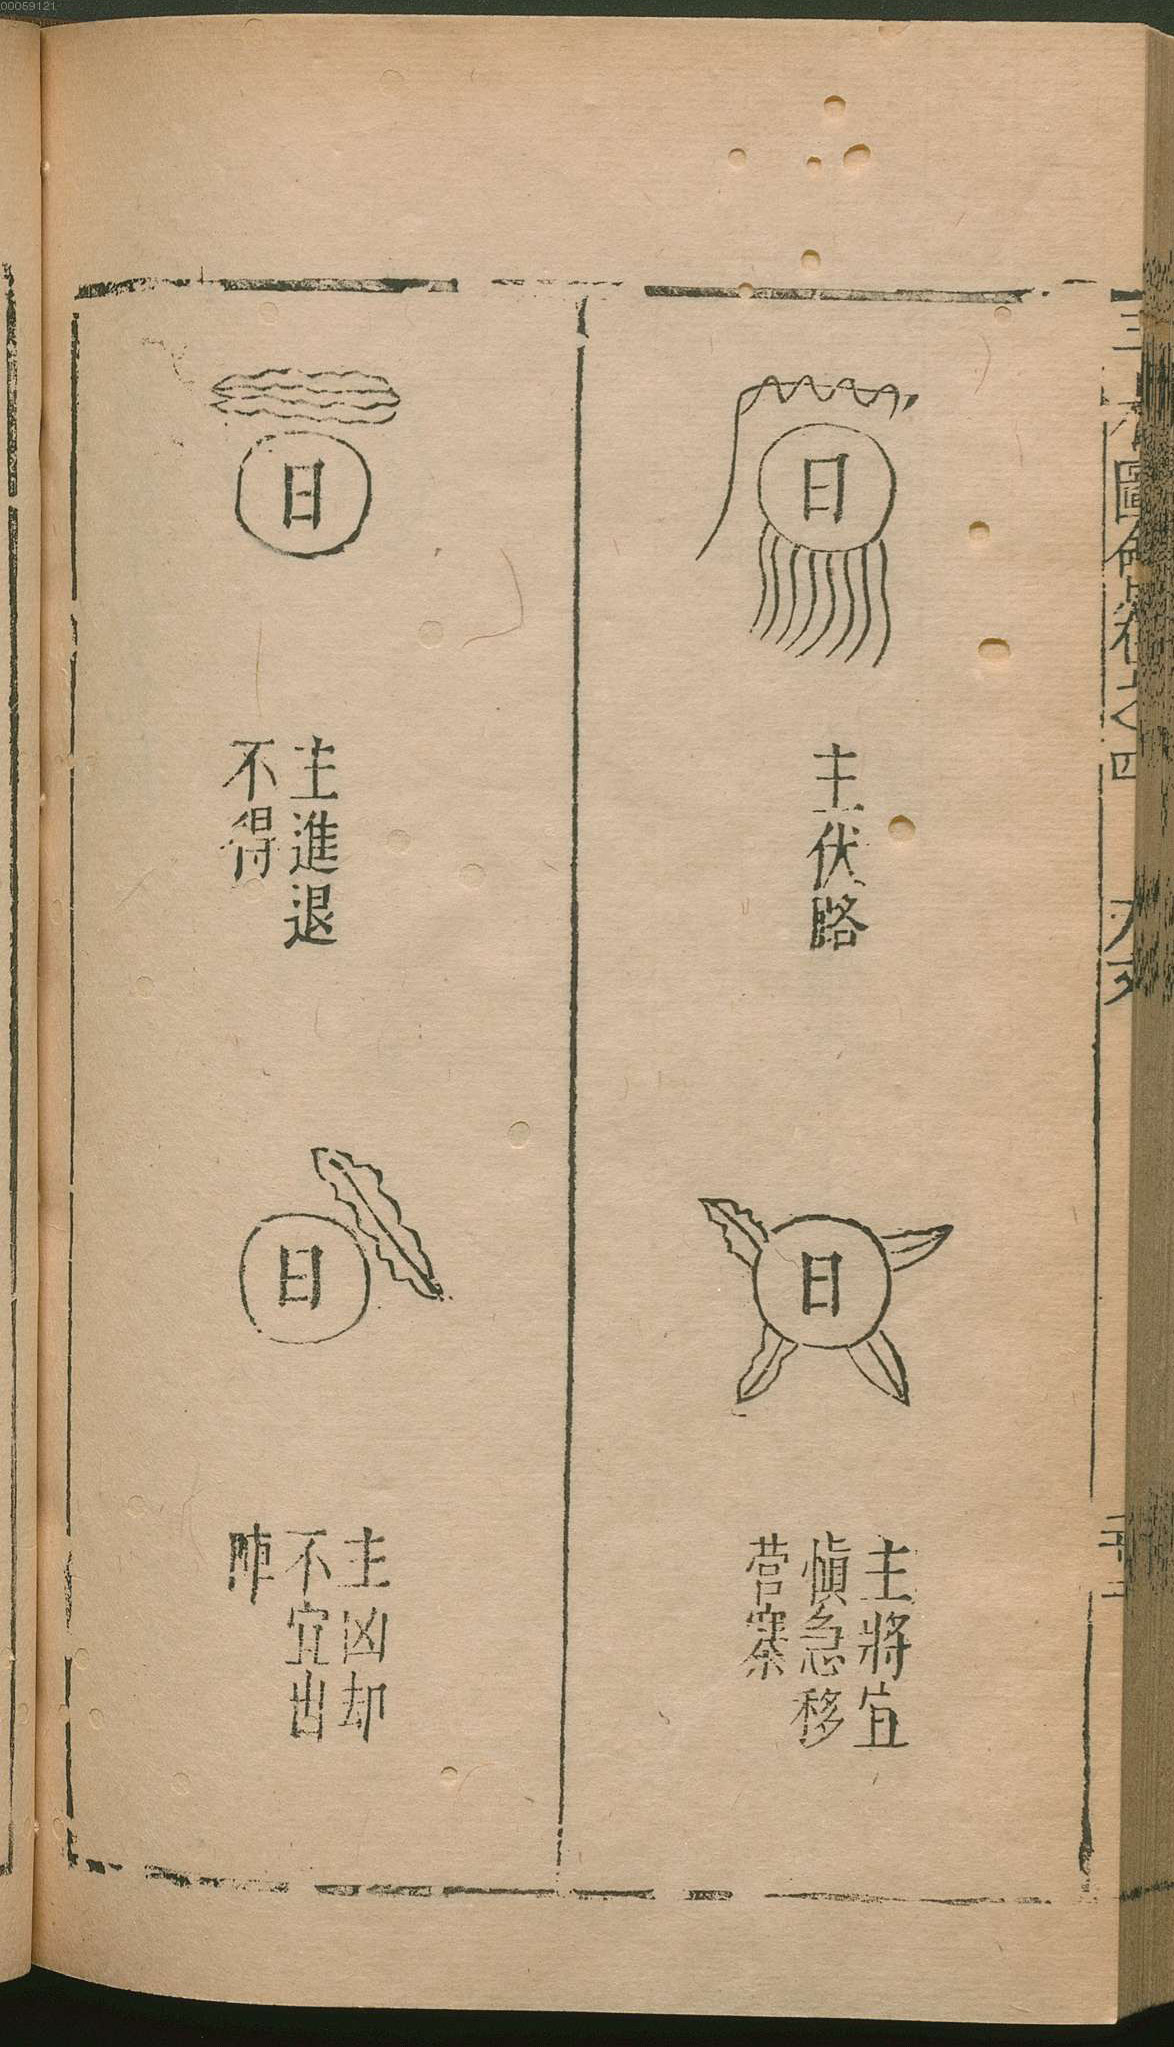 00059121
日
主伏路
日
主將宜
慎急移
营寨
日
主進退
不得
日
主凶却
不宜出
陣
圖會
卷之四